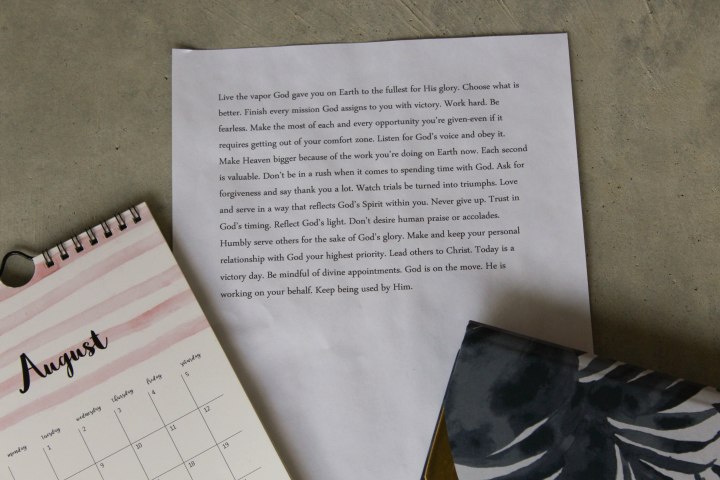 Live the vapor God gave you on Earth to the fullest for His glory. Choose what is
better. Finish every mission God assigns to you with victory. Work hard. Be
fearless. Make the most of each and every opportunity you're given-even if it
requires getting out of your comfort zone. Listen for God's voice and obey it.
Make Heaven bigger because of the work you're doing on Earth now. Each second
is valuable. Don't be in a rush when it comes to spending time with God. Ask for
forgiveness and say thank you a lot. Watch trials be turned into triumphs. Love
and serve in a way that reflects God's Spirit within you. Never give up. Trust in
God's timing. Reflect God's light. Don't desire human praise or accolades.
Humbly serve others for the sake of God's glory. Make and keep your personal
relationship with God your highest priority. Lead others to Christ. Today is a
victory day. Be mindful of divine appointments. God is on the move. He is
working on your behalf. Keep being used by Him.
August
monday tuesday wednesday thursday friday saturday
1 2 3 4 5
9 10 11 12
18 19